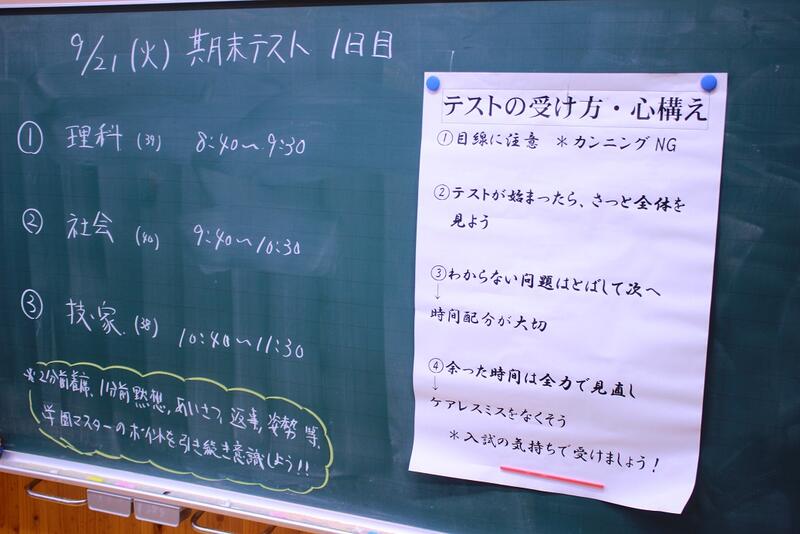 9/21(火) 期末テスト 1日目
① 理科 (39) 8:40〜9:30
② 社会 (40) 9:40〜10:30
③ 技・家 (38) 10:40〜11:30
※2分前着席、1分前黙想、あいさつ、返事、姿勢 等、
学園マスターのポイントを引き続き意識しよう!!
テストの受け方・心構え
①目線に注意 *カンニングNG
②テストが始まったら、さっと全体を
見よう
③わからない問題はとばして次へ
↓
時間配分が大切
④余った時間は全力で見直し
↓
ケアレスミスをなくそう
*入試の気持ちで受けましょう!